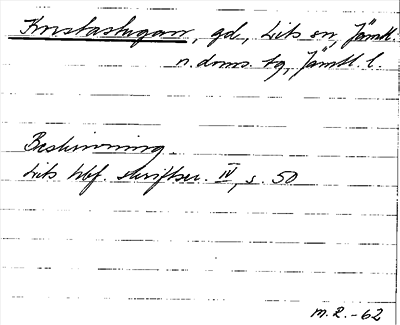 Krustastugan, gd, Lits sn, Jämtl.
n. doms. tg, Jämtl. l.
Beskrivning
Lits hbf. skriftser. IV, s. 50
M.R.-62